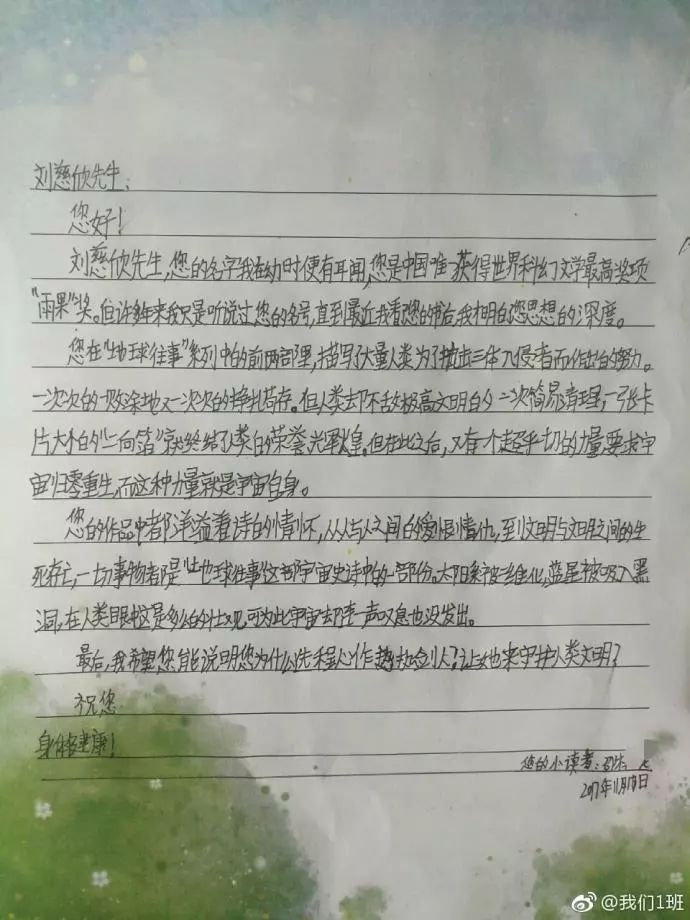 刘慈欣先生:
您好!
刘慈欣先生,您的名字我在幼时便有耳闻,您是中国唯一获得世界科幻文学最高奖项
"雨果"奖。但许多年来我只是听说过您的名号,直到最近我看您的书后,我才明白您思想的深度。
您在"地球往事"系列中的前两部里,描写了大量人类为了抗击三体入侵者而作出的努力。
一次次的一败涂地又一次次的挣扎苟存。但人类却不敌极高文明的一次简易清理,一张卡
片大小的"二向箔"就终结了人类的荣誉光辉煌。但在此之后,又有一个超乎一切的力量要求宇
宙归零重生,而这种力量就是宇宙自身。
您的作品中都洋溢着诗的情怀,从人与人之间的爱恨情仇,到文明与文明之间的生
死存亡,一切事物都是"地球往事"这部宇宙史诗中的一部份。太阳系被二维化,蓝星被吸入黑
洞,在人类眼中这是多么的壮观,可为此宇宙却连一声叹息也没发出。
最后,我希望您能说明您为什么选程心作为执剑人?让她来守护人类文明?
祝您
身体健康!
您的小读者:
2017年11月18日
@我们1班